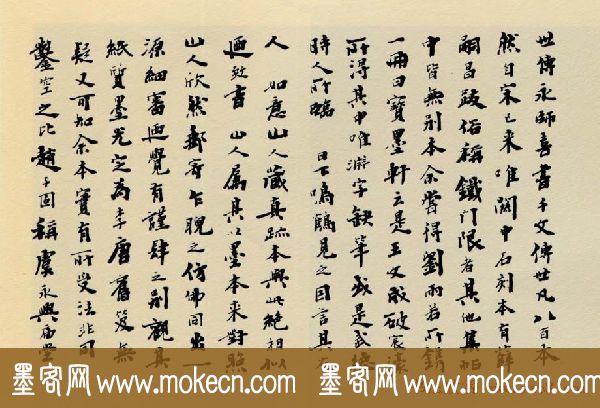 世傳永師善書千文傳世凡八百本
然自宋已來唯關中石刻本有薛
嗣昌跋俗稱鐵門限者其他集帖
中皆無別本余嘗得劉雨若所鐫
一冊曰寶墨軒云是王文敏破
所得其中唯游字缺筆或是武
時人所臨 日下鳴鶴見之因言其
人 如意山人藏真跡本與此絕相似
迺致書 山人屬其以墨本來對照
山人欣然郵寄乍睨之仿佛同出一
源細審迺覺有謹肆之別觀其
紙質墨光定為李唐舊笈無
疑又可知余本實有所受法非同
鑿空之比趙子固稱虞永興廟堂
墨客网 www.mokecn.com 墨客网 www.mokecn.com